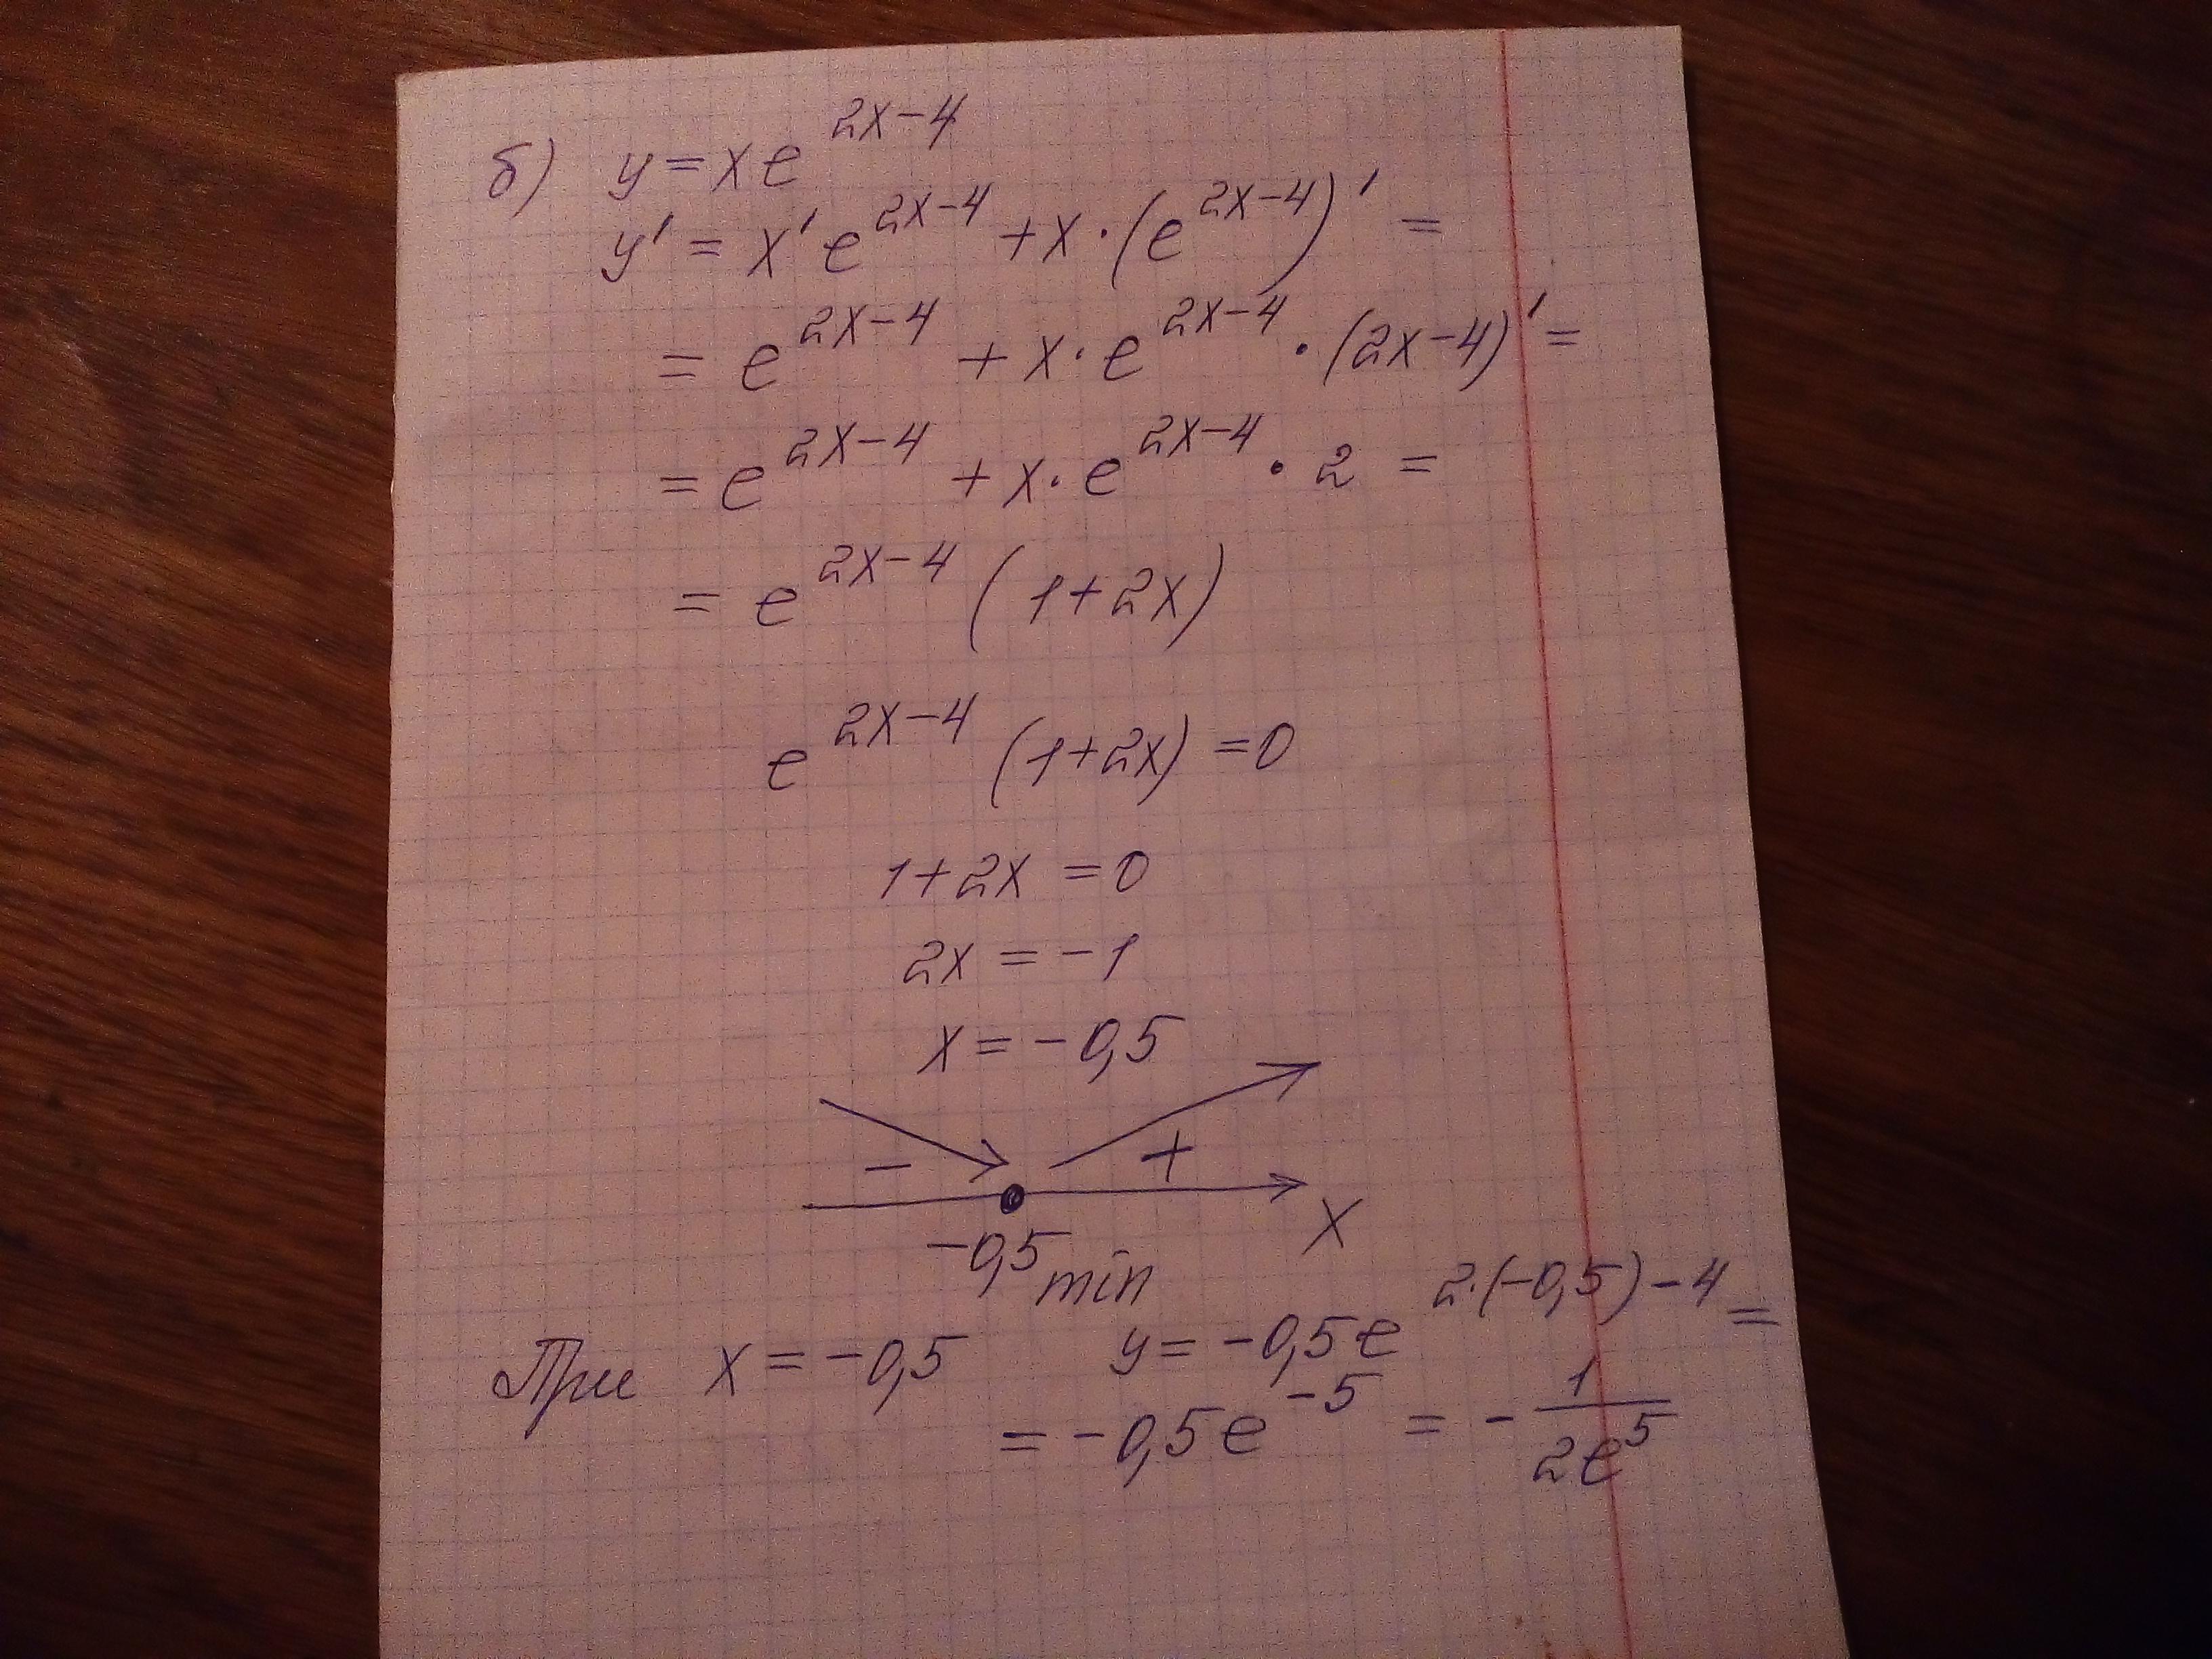 б) y = xe^{2x-4}
y' = x'e^{2x-4} + x·(e^{2x-4})' =
= e^{2x-4} + x·e^{2x-4}·(2x-4)' =
= e^{2x-4} + x·e^{2x-4}·2 =
= e^{2x-4}(1+2x)
e^{2x-4}(1+2x) = 0
1+2x = 0
2x = -1
x = -0,5
- +
-0,5 min x
При x = -0,5 y = -0,5e^{2·(-0,5)-4} =
= -0,5e^{-5} = -\frac{1}{2e^5}